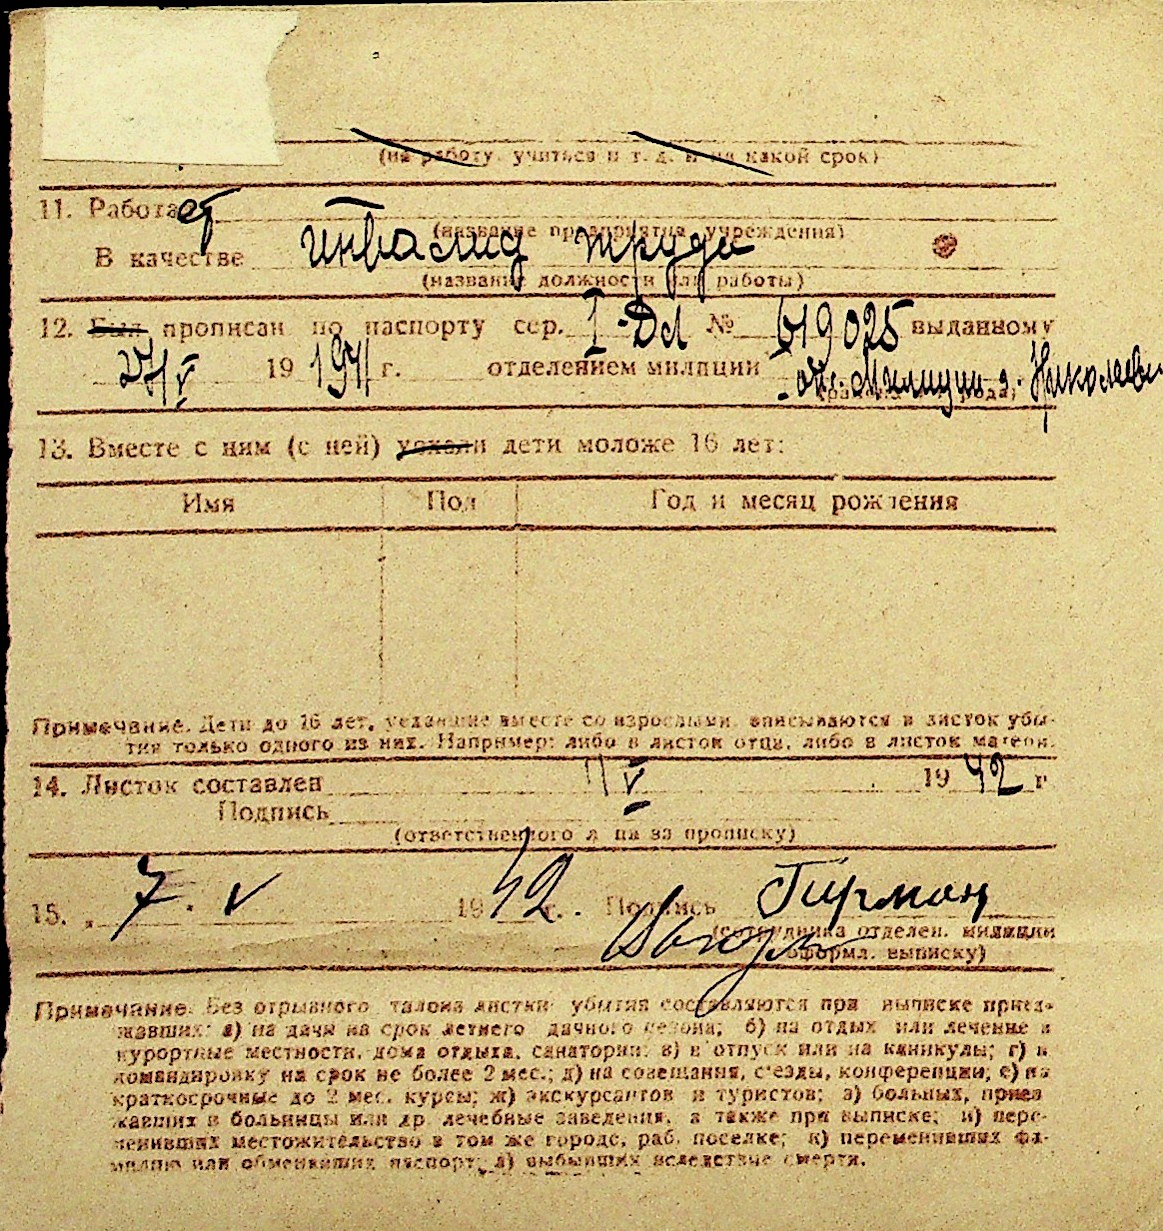 (на работу, учиться и т. д. и на какой срок)
11. Работает
(название предприятия, учреждения)
В качестве инвалид труда
(название должности или работы)
12. Был прописан по паспорту сер. I-ДЛ № 619025 выданному
27/V 19 1941 г. отделением милиции отд. Милиции г. Николаев
13. Вместе с ним (с ней) уехали дети моложе 16 лет:
Имя Пол Год и месяц рождения
Примечание. Дети до 16 лет, уехавшие вместе со взрослыми, вписываются в листок убы-
тия только одного из них. Например: либо в листок отца, либо в листок матери.
14. Листок составлен V 1942 г
Подпись
(ответственного лица за прописку)
15. „ 7. V 1942 г. Подпись
(сотрудника отделен. милиции
оформл. выписку)
Примечание. Без отрывного талона листки убытия составляются при выписке приез-
жавших: а) на дачи на срок летнего дачного сезона; б) на отдых или лечение в
курортные местности, дома отдыха, санатории; в) в отпуск или на каникулы; г) в
командировку на срок не более 2 мес.; д) на совещания, съезды, конференции; е) на
краткосрочные до 2 мес. курсы; ж) экскурсантов и туристов; з) больных, приез
жавших в больницы или др. лечебные заведения, а также при выписке; и) пере-
менивших местожительство в том же городе, раб. поселке; к) переменивших фа-
милию или обменявших паспорт; л) выбывших вследствие смерти.